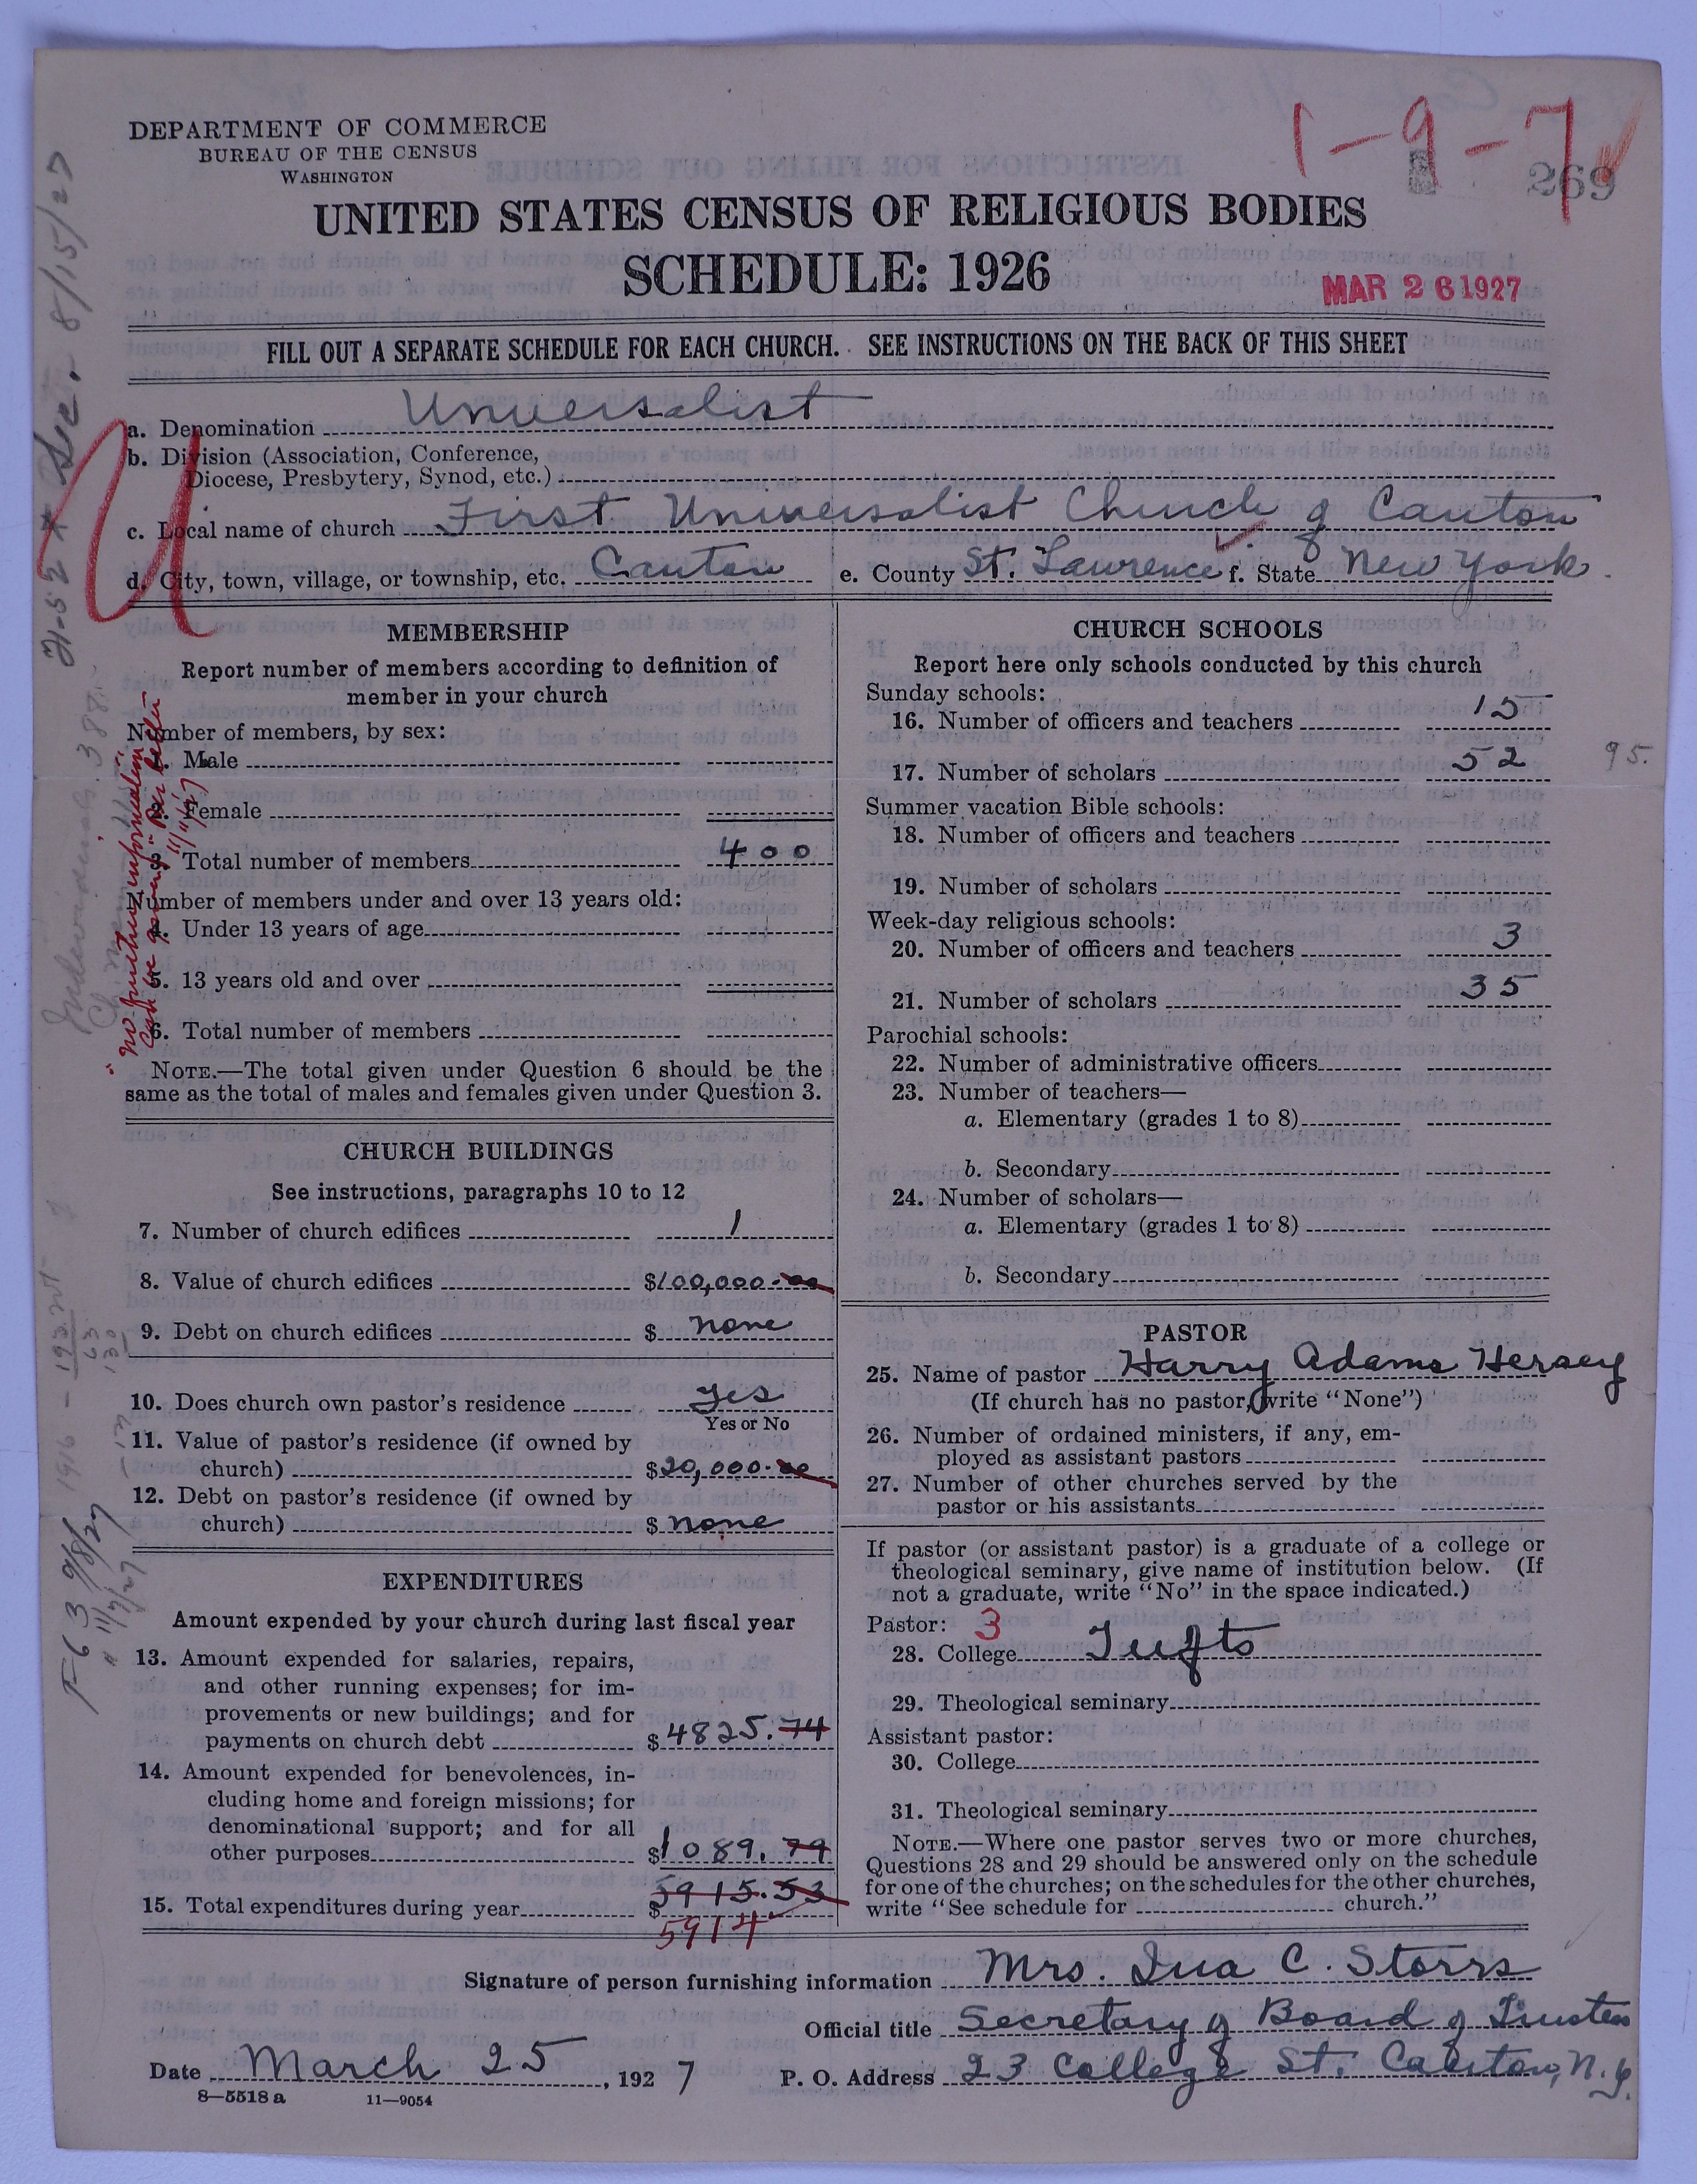 DEPARTMENT OF COMMERCE
BUREAU OF THE CENSUS
WASHINGTON
1-9-7
269
UNITED STATES CENSUS OF RELIGIOUS BODIES
SCHEDULE: 1926
MAR 26 1927
FILL OUT A SEPARATE SCHEDULE FOR EACH CHURCH. SEE INSTRUCTIONS ON THE BACK OF THIS SHEET
a. Denomination Universalist
b. Division (Association, Conference,
Diocese, Presbytery, Synod, etc.)
c. Local name of church First Universalist Church of Canton
d. City, town, village, or township, etc. Canton e. County St. Lawrence f. State New York.
MEMBERSHIP
Report number of members according to definition of
member in your church
Number of members, by sex:
1. Male
2. Female
3. Total number of members 400
Number of members under and over 13 years old:
4. Under 13 years of age
5. 13 years old and over
6. Total number of members
NOTE.—The total given under Question 6 should be the
same as the total of males and females given under Question 3.
CHURCH BUILDINGS
See instructions, paragraphs 10 to 12
7. Number of church edifices 1
8. Value of church edifices $100,000.00
9. Debt on church edifices $ none
10. Does church own pastor's residence Yes
Yes or No
11. Value of pastor's residence (if owned by
church) $20,000.00
12. Debt on pastor's residence (if owned by
church) $ none
EXPENDITURES
Amount expended by your church during last fiscal year
13. Amount expended for salaries, repairs,
and other running expenses; for im-
provements or new buildings; and for
payments on church debt $4825.74
14. Amount expended for benevolences, in-
cluding home and foreign missions; for
denominational support; and for all
other purposes $1089.79
5915.53
15. Total expenditures during year $
5914
CHURCH SCHOOLS
Report here only schools conducted by this church
Sunday schools:
16. Number of officers and teachers 15
17. Number of scholars 52 95.
Summer vacation Bible schools:
18. Number of officers and teachers
19. Number of scholars
Week-day religious schools:
20. Number of officers and teachers 3
21. Number of scholars 35
Parochial schools:
22. Number of administrative officers
23. Number of teachers—
a. Elementary (grades 1 to 8)
b. Secondary
24. Number of scholars—
a. Elementary (grades 1 to 8)
b. Secondary
PASTOR
25. Name of pastor Harry Adams Hersey
(If church has no pastor, write "None")
26. Number of ordained ministers, if any, em-
ployed as assistant pastors
27. Number of other churches served by the
pastor or his assistants
If pastor (or assistant pastor) is a graduate of a college or
theological seminary, give name of institution below. (If
not a graduate, write "No" in the space indicated.)
Pastor: 3
28. College Tufts
29. Theological seminary
Assistant pastor:
30. College
31. Theological seminary
NOTE.—Where one pastor serves two or more churches,
Questions 28 and 29 should be answered only on the schedule
for one of the churches; on the schedules for the other churches,
write "See schedule for church."
Signature of person furnishing information Mrs. Ina C. Storrs
Official title Secretary of Board of Trustees
Date March 25, 1927 P. O. Address 23 College St. Canton, N.Y.
8—5518 a 11—9054
U
"No further information
can be given" per letter
11/11/27
F-63 9/8/27
" 11/7/27